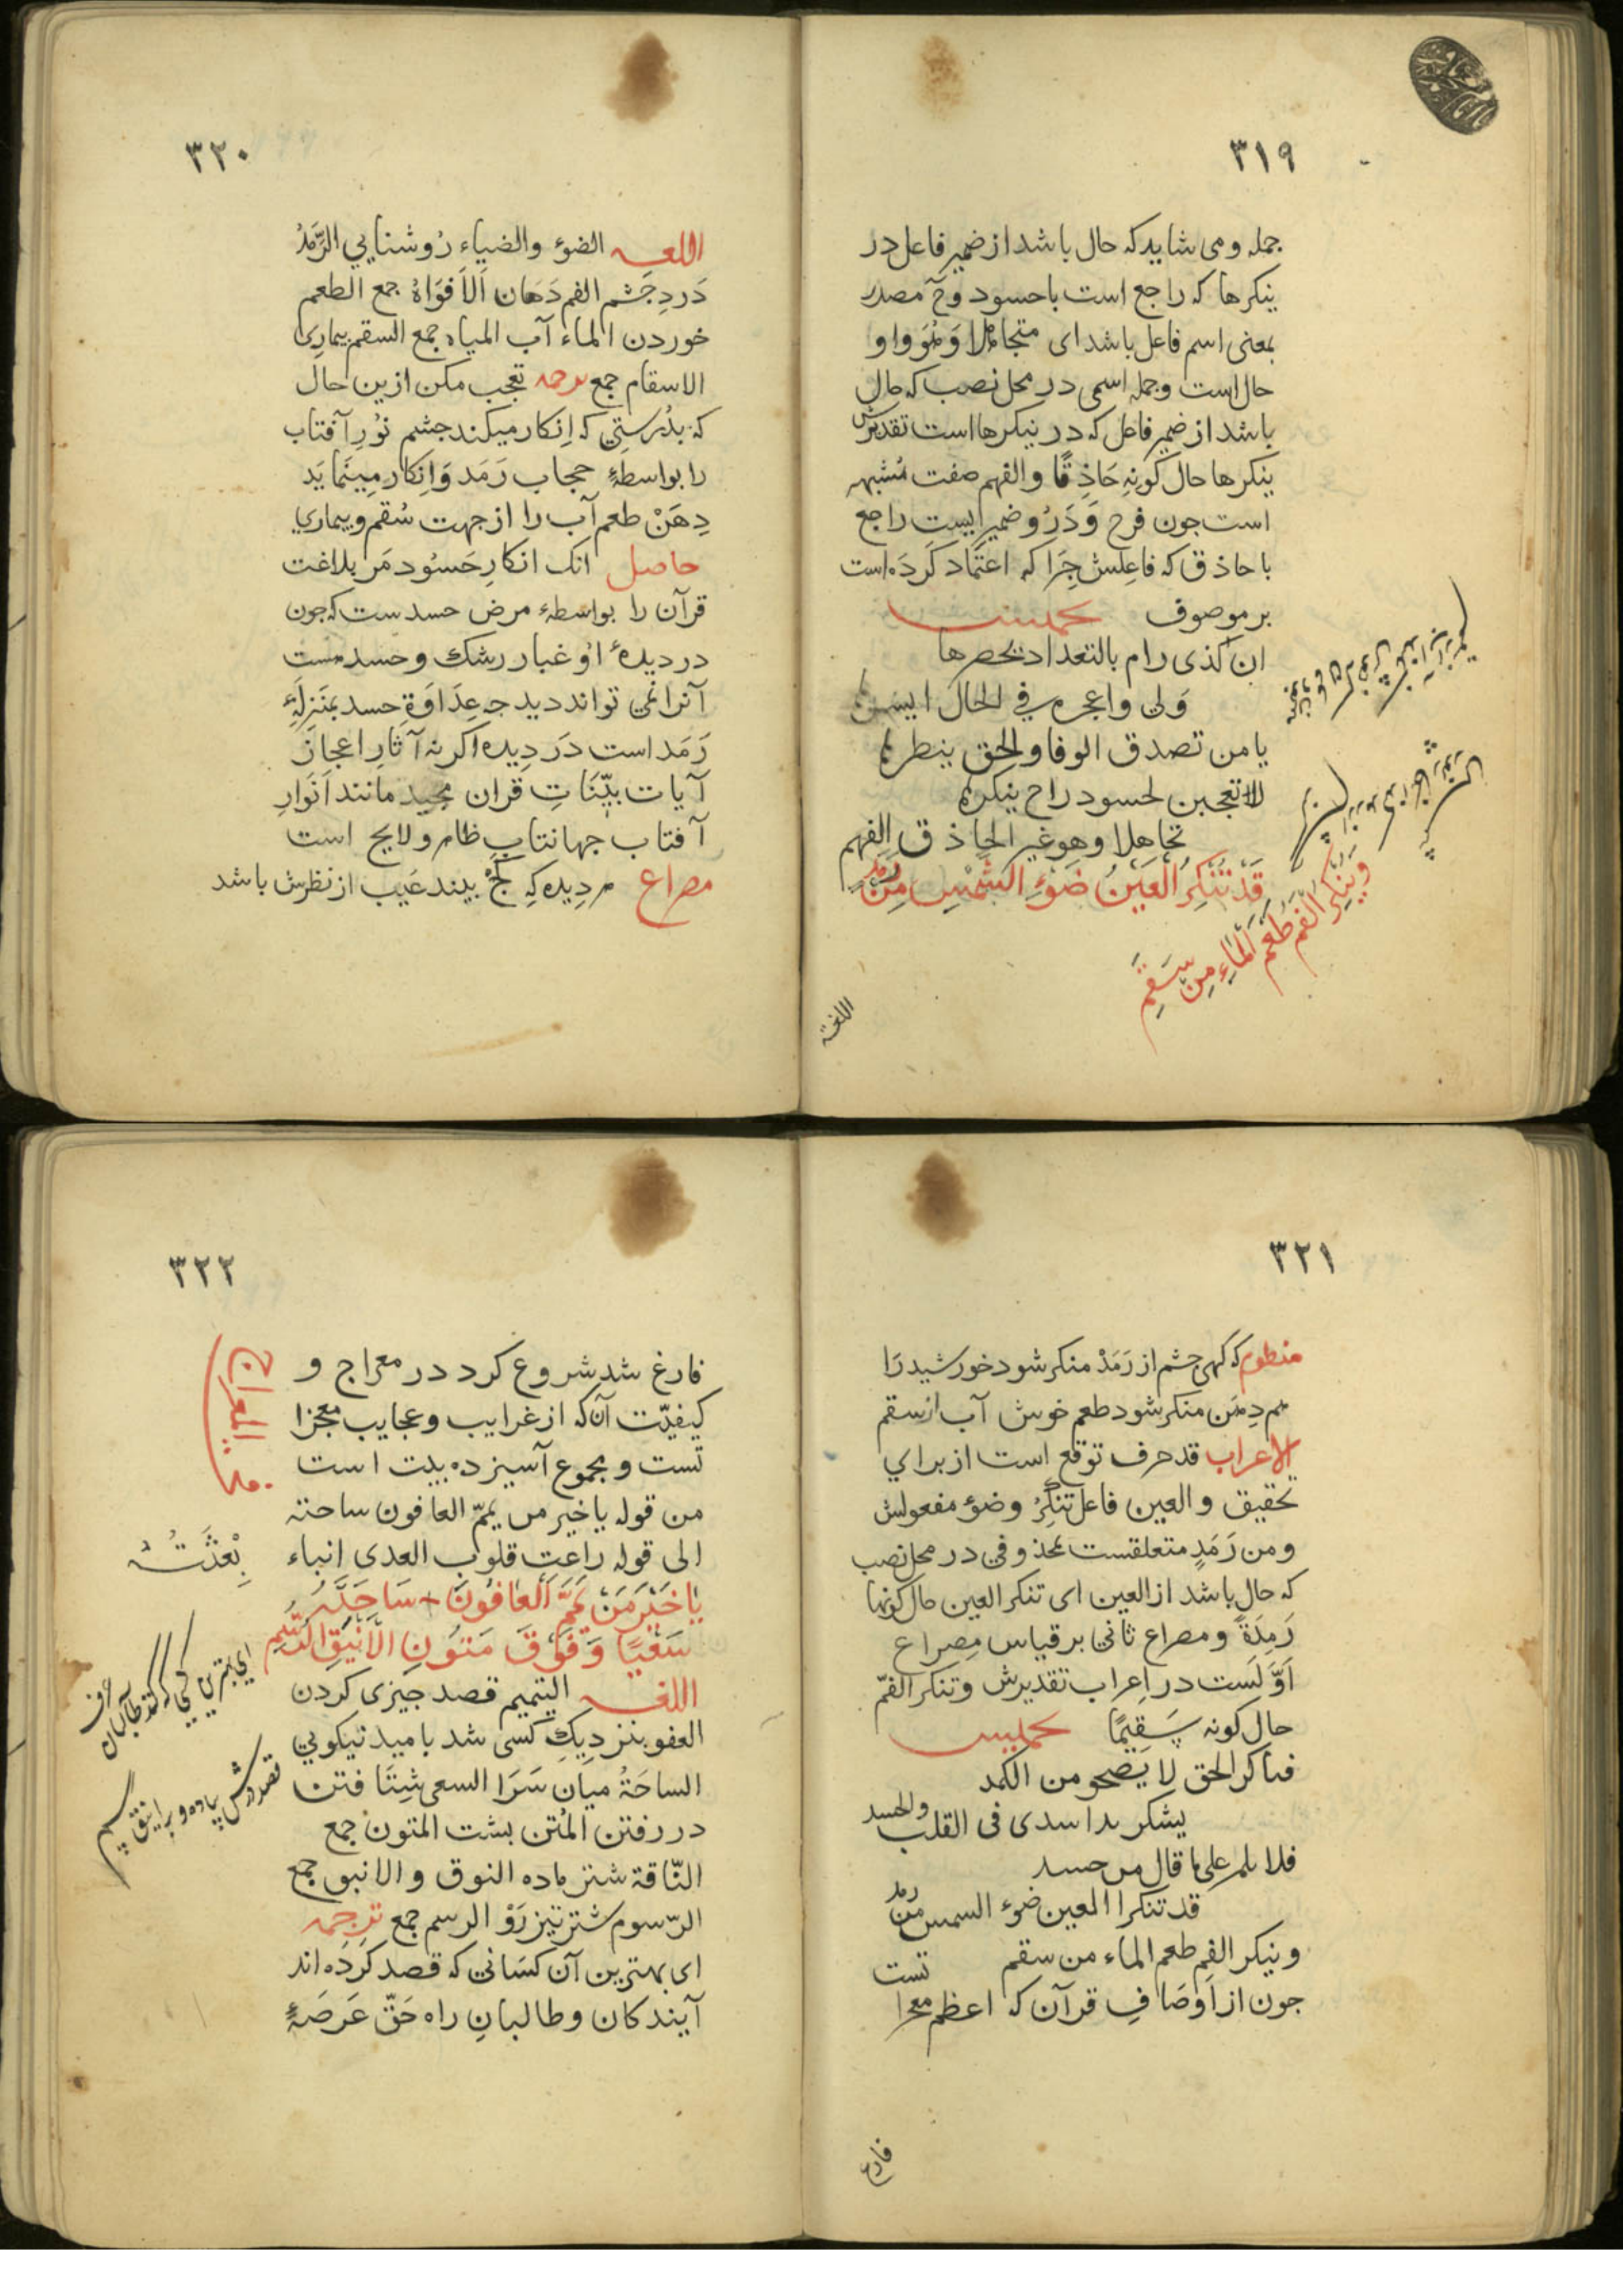 ٣١٩
جمله و می شاید که حال باشد از ضمیر فاعل در
ینکرها که راجع است باحسود و ح مصدر
بمعنی اسم فاعل باشد ای متجاهلا وَهُوَ واو
حال است و جمله اسمی در محل نصب که حال
باشد از ضمیر فاعل که در ینکرها است تقدیرش
ینکرها حال کونه حَاذِقًا والفهم صفت مُشبهه
است جون فرح وَ دَرُو ضمیر ایست راجع
با حاذق که فاعِلش جِرَا که اعتماد کَردَه است
بر موصوف
ان کذی رام بالتعداد یحصرها
وَلی واعجره فی الحال
یا من تصدق الوفا والحق ینطرها
لا تعجبن لحسود راح ینکرها
تجاهلا وهو غیر الحاذق الفهم
قَدْ تُنْكِرُ الْعَيْنُ ضَوْءَ الشَّمْسِ مِنْ رَمَدٍ
وَيُنْكِرُ الْفَمُ طَعْمَ الْمَاءِ مِنْ سَقَمِ
اللغة
٣٢٠
اللغه الضوٴ والضیاء رُوشنایی الرَّمَدُ
دَردِ جَشم الفم دَهَان اَلاَفوَاهُ جمع الطعم
خوردن الماء آب المیاه جمع السقم بیماری
الاسقام جمع ترجمه تعجب مکن ازین حال
که بدُرستی که اِنکار میکند جشم نُورِ آفتاب
را بواسطهٔ حجاب رَمَد وَاِنکار مینَماید
دِهَنْ طعم آب را از جهت سُقم و بیماری
حاصل انک انکارِ حَسُود مَر بلاغت
قرآن را بواسطهٔ مرض حسدست که جون
در دیدهٔ او غبار رشک و حسد هست
آنرا نمی تواند دید جه عِدَاوَة حسد بمَنزِلَهٔ
رَمَد است دَر دِیده اکرنه آثارِ اعجاز
آیات بیّنَاتِ قران مجید مانند اَنوَارِ
آفتاب جهانتاب ظاهر و لایح است
مصراع هر دِیده که کج بیند عَیب از نظرش باشد
٣٢١
منظوم که کهی جشم از رَمَدْ منکر شود خورشید رَا
هم دِهَن منکر شود طعم خوش آب از سقم
الاعراب قد حرف توقع است از برای
تحقیق و العین فاعل تنکِرُ وضوٴ مفعولش
و من رَمَدٍ متعلقست بمحذوفی در محل نصب
که حال باشد از العین ای تنکر العین حال کونها
رَمِدَةً و مصراع ثانی بر قیاس مِصراع
اَوَّلَست در اِعراب تقدیرش و تنکر الفمّ
حال کونه سَقِیمًا
فناکر الحق لا یَصحو من الکمد
یشکر بدا سدی فی القلب والحسد
فلا یلمر علی ما قال من حسد
قد تنکرا العین ضوٴ السمس من رمد
و ینکر الفم طعم الماء من سقم
جون از اَوصَافِ قرآن که اعظم معجزا تست
فارغ
٣٢٢
فارغ شد شروع کرد در معراج و
کیفیّت آن که از غرایب و عجایب معجزا
تست و مجموع آن سیزده بیت است
من قوله یا خیر من یممّ العافون ساحته
الی قوله راعت قلوب العدی انباء
بِعْثَتُهُ
يَا خَيْرَ مَنْ يَمَّمَ الْعَافُونَ سَاحَتَهُ
سَعْيًا وَفَوْقَ مُتُونِ الْاَيْنُقِ الرُّسُمِ
اللغه التیمیم قصد جیزی کردن
العفو بنزدیکِ کسی شد بامید نیکویی
الساحَةُ میان سَرَا السعی شِتَا فتن
در رفتن المُتن بشت المتون جمع
النّاقة شتر ماده النوق و الانیق جمع
الرّسوم شتر تیز رَوْ الرسم جمع ترجمه
ای بهترین آن کسَانی که قصد کرَدَه اند
آیندکان و طالبانِ راه حَقّ عَرصَهٔ